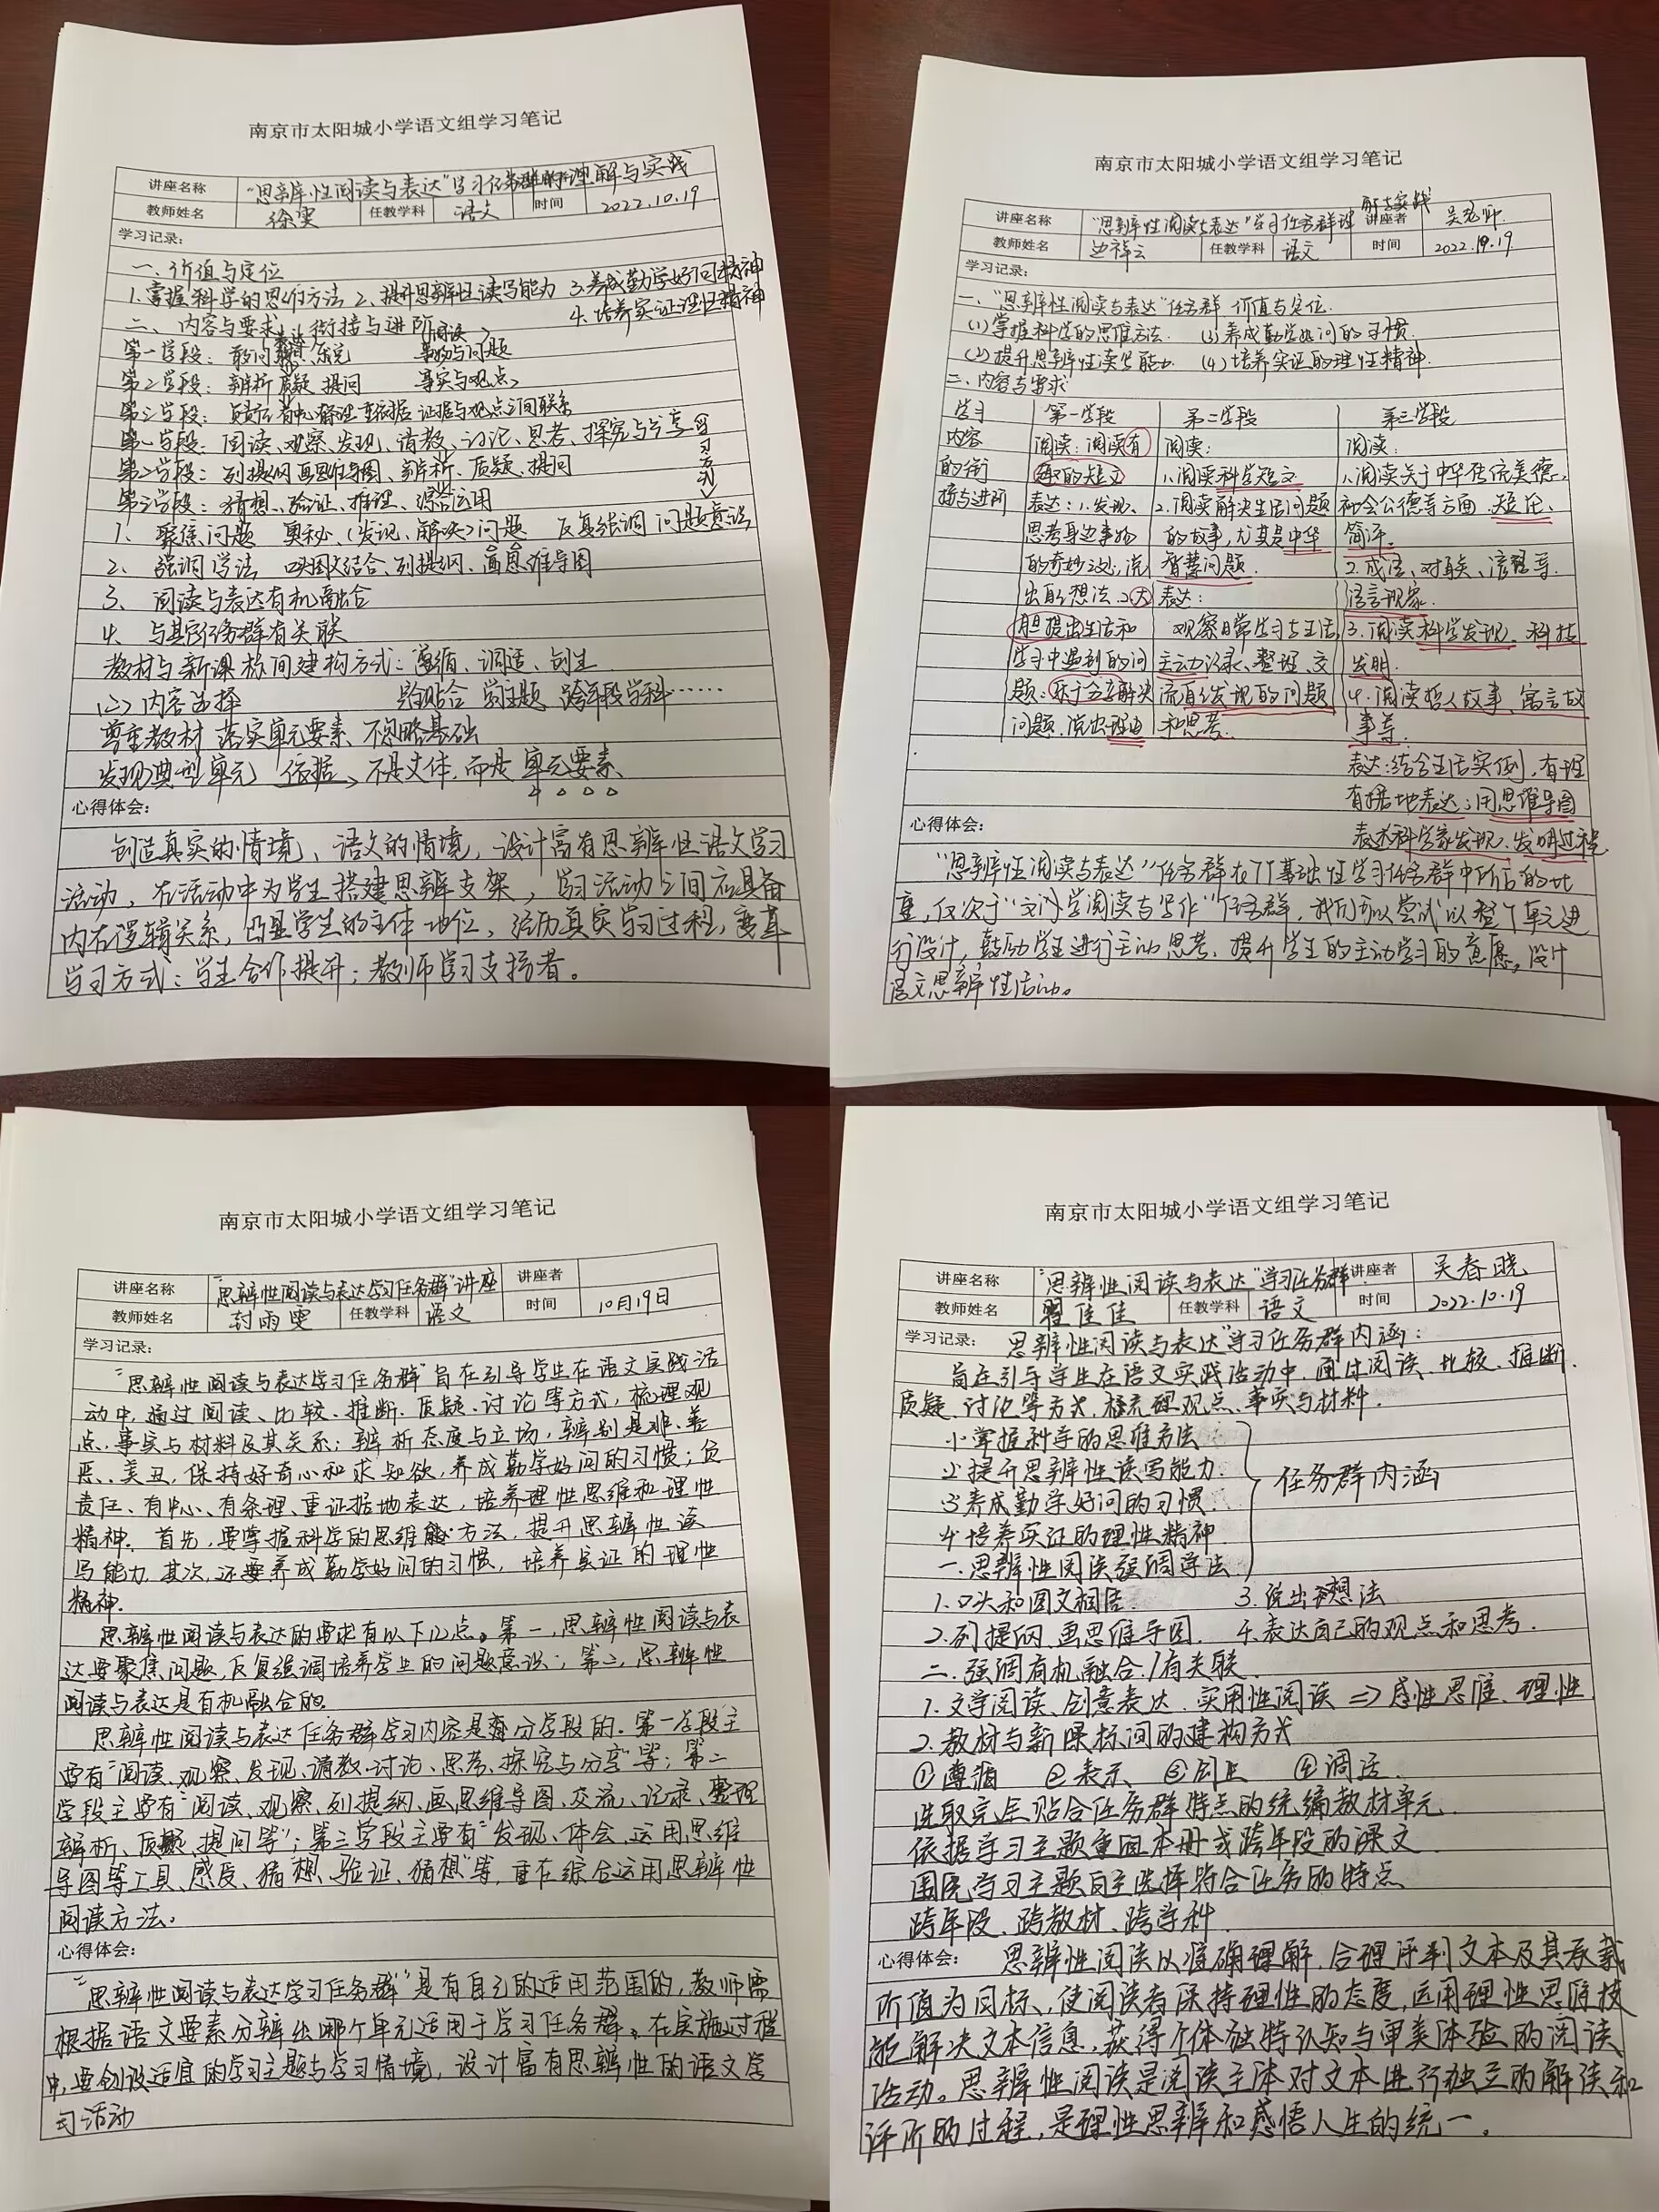 南京市太阳城小学语文组学习笔记
讲座名称 "思辨性阅读与表达"学习任务群的理解与实践
教师姓名 徐雯 任教学科 语文 时间 2022.10.19
学习记录:
一、价值与定位
1.掌握科学的思维方法 2、提升思辨性读写能力 3.养成勤学好问精神
4.培养实证理性精神
二、内容与要求 衔接与进阶
(表达) (阅读)
第一学段:敢问 事物与问题
第二学段:辨析 质疑 提问 事实与观点
第三学段: 有中心有条理重依据 证据与观点之间联系
第一学段:阅读、观察、发现、请教、讨论、思考、探究与分享
学习方式
第二学段:列提纲 画思维导图、辨析、质疑、提问
第三学段:猜想、验证、推理、综合运用
1、聚焦问题 奥秘、(发现、解决)问题 反复强调 问题意识
2、强调学法 口头图文结合、列提纲、画思维导图
3、阅读与表达有机融合
4、与其它任务群有关联
教材与新课标间建构方式:遵循、调适、创生
(二)内容选择 贴合 学主题 跨年段学科……
尊重教材 落实单元要素、不忽略基础
发现典型单元 依据、不是文体,而是单元要素、
心得体会:
创造真实的情境、语文的情境,设计富有思辨性语文学习
活动,在活动中为学生搭建思辨支架,学习活动之间应具备
内在逻辑关系,凸显学生的主体地位,经历真实学习过程,变革
学习方式:学生合作提升;教师学习支持者。
南京市太阳城小学语文组学习笔记
讲座名称 "思辨性阅读与表达"学习任务群理解与实践 讲座者 吴老师
教师姓名 边祥云 任教学科 语文 时间 2022.10.19
学习记录:
一、"思辨性阅读与表达"任务群 价值与定位.
(1)掌握科学的思维方法. (3)养成勤学好问的习惯.
(2)提升思辨性读写能力. (4)培养实证的理性精神.
二、内容与要求
学习内容的衔接与进阶
第一学段
阅读:阅读有趣的短文
表达:1.发现、思考身边事物的奇妙之处,说出自己的想法.2.大胆提出生活和学习中遇到的问题;乐于分享解决问题,说出理由
第二学段
阅读:
1、阅读科学短文
2.阅读解决生活问题的故事,尤其是中华智慧问题.
表达:
观察日常学习与生活,主动记录、整理、交流自己发现的问题和思考.
第三学段
阅读:
1、阅读关于中华传统美德、社会公德等方面短论、简评.
2.成语、对联、谚语等语言现象.
3.阅读科学发现、科技发明.
4.阅读哲人故事、寓言故事等.
表达:结合生活实例,有理有据地表达;用思维导图表达科学家发现、发明过程
心得体会:
"思辨性阅读与表达"任务群在个基础性学习任务群中所占的比
重,仅次于"文学阅读与写作"任务群,我们可以尝试以整个单元进
行设计,鼓励学生进行主动思考,提升学生的主动学习的意愿。设计
语文思辨性活动。
南京市太阳城小学语文组学习笔记
讲座名称 "思辨性阅读与表达学习任务群"讲座 讲座者
教师姓名 封雨雯 任教学科 语文 时间 10月19日
学习记录:
"思辨性阅读与表达学习任务群"旨在引导学生在语文实践活
动中,通过阅读、比较、推断、质疑、讨论等方式,梳理观
点、事实与材料及其关系;辨析态度与立场,辨别是非、善
恶、美丑,保持好奇心和求知欲,养成勤学好问的习惯;负
责任、有中心、有条理、重证据地表达,培养理性思维和理性
精神。首先,要掌握科学的思维方法,提升思辨性读
写能力.其次,还要养成勤学好问的习惯,培养实证的理性
精神.
思辨性阅读与表达的要求有以下几点。第一,思辨性阅读与表
达要聚焦问题,反复强调培养学生的问题意识;第二,思辨性
阅读与表达是有机融合的.
思辨性阅读与表达任务群学习内容是分学段的.第一学段主
要有"阅读、观察、发现、请教、讨论、思考、探究与分享"等;第二
学段主要有"阅读、观察、列提纲、画思维导图、交流、记录、整理
辨析、质疑、提问等";第三学段主要有"发现、体会、运用思维
导图等工具、感受、猜想、验证、猜想"等,重在综合运用思辨性
阅读方法。
心得体会:
"思辨性阅读与表达学习任务群"是有自己的适用范围的,教师需
根据语文要素分辨出哪个单元适用于学习任务群。在实施过程
中,要创设适宜的学习主题与学习情境,设计富有思辨性的语文学
习活动
南京市太阳城小学语文组学习笔记
讲座名称 "思辨性阅读与表达"学习任务群 讲座者 吴春晓
教师姓名 翟佳佳 任教学科 语文 时间 2022.10.19
学习记录: 思辨性阅读与表达"学习任务群内涵:
旨在引导学生在语文实践活动中,通过阅读、比较、推断、
质疑、讨论等方式,梳理观点、事实与材料.
1.掌握科学的思维方法
2.提升思辨性读写能力.
3.养成勤学好问的习惯.
4.培养实证的理性精神.
任务群内涵
一.思辨性阅读强调学法
1.口头和图文相结 3.说出想法
2.列提纲、画思维导图. 4.表达自己的观点和思考.
二.强调有机融合/有关联
1.文学阅读、创意表达.实用性阅读⇒感性思维、理性
2.教材与新课标间的建构方式
①遵循 ②表示 ③创生 ④调适.
选取完全贴合任务群特点的统编教材单元.
依据学习主题重组本册或跨年段的课文
围绕学习主题自主选择符合任务的特点
跨年段、跨教材、跨学科.
心得体会: 思辨性阅读以准确理解、合理评判文本及其承载
价值为目标、使阅读者保持理性的态度,运用理性思维技
能解决文本信息,获得个体独特认知与审美体验的阅读
活动。思辨性阅读是阅读主体对文本进行独立的解读和
评析的过程,是理性思辨和感悟人生的统一。